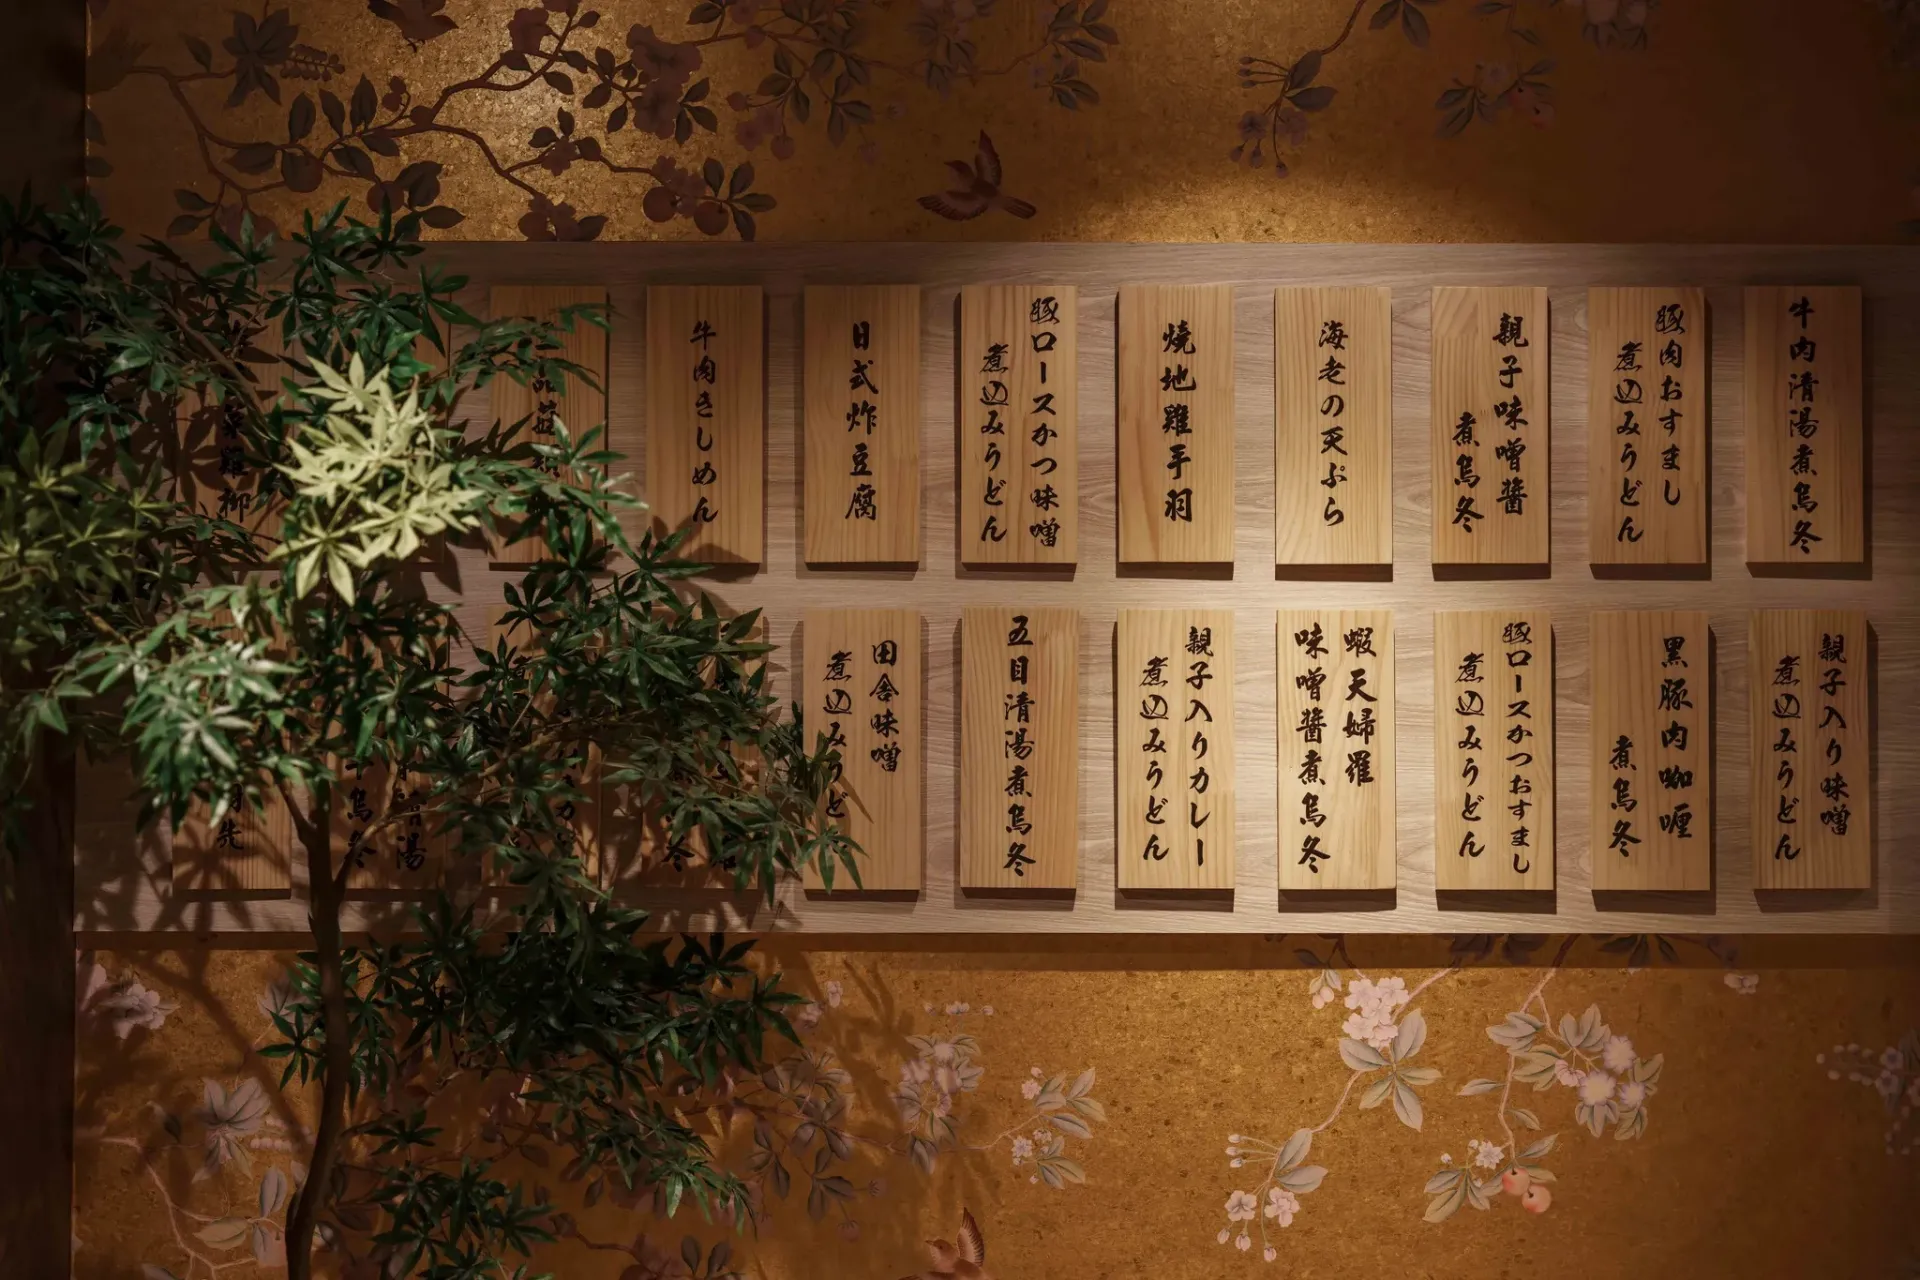 牛肉清湯煮烏冬
豚肉おすまし
煮込みうどん
親子味噌醬
煮烏冬
海老の天ぷら
焼地雞手羽
豚ロースかつ味噌
煮込みうどん
日式炸豆腐
牛肉きしめん
雞柳
親子入り味噌
煮込みうどん
黒豚肉咖喱
煮烏冬
豚ロースかつおすまし
煮込みうどん
蝦天婦羅
味噌醬煮烏冬
親子入りカレー
煮込みうどん
五目清湯煮烏冬
田舎味噌
煮込みうど
清湯
烏冬